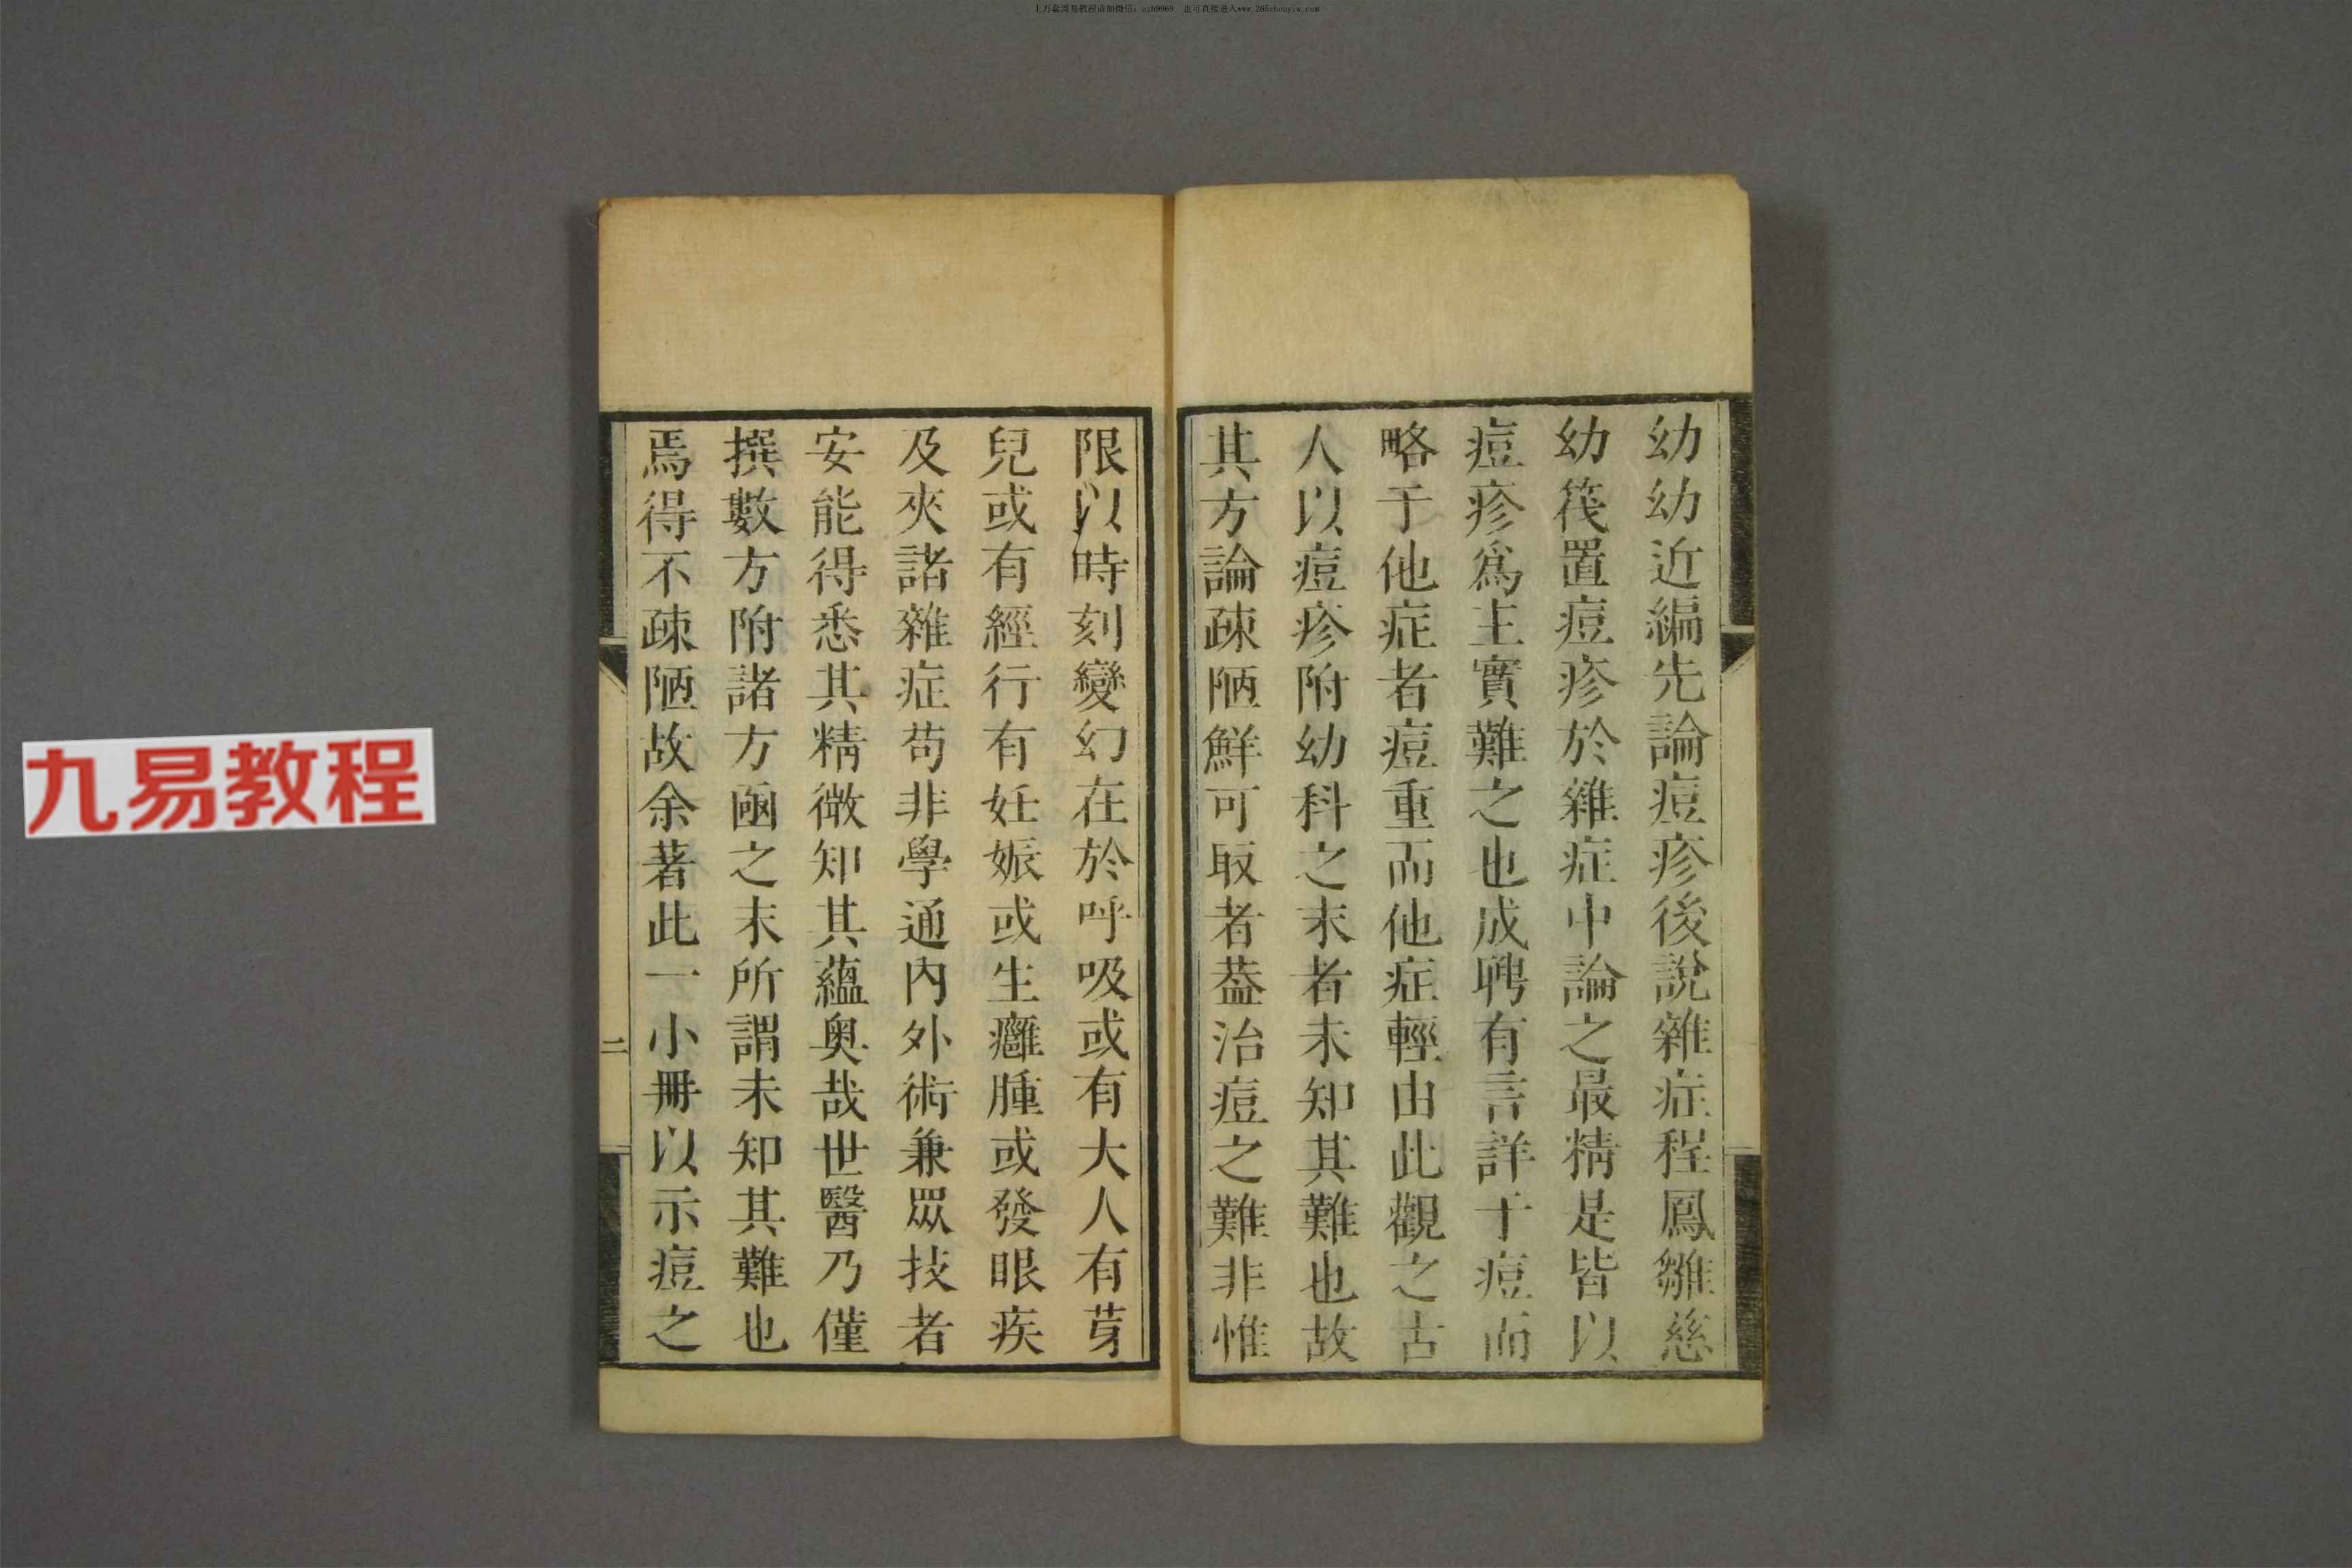 上万套周易教程请加微信：azh9969　也可直接进入www.265zhouyiw.com
幼幼近編先論痘疹後說雜症程鳳雛慈
幼筏置痘疹於雜症中論之最精是皆以
痘疹爲主實難之也成聘有言詳于痘而
略于他症者痘重而他症輕由此觀之古
人以痘疹附幼科之末者未知其難也故
其方論疎陋鮮可取者葢治痘之難非惟
限以時刻變幻在於呼吸或有大人有芽
兒或有經行有妊娠或生癰腫或發眼疾
及夾諸雜症苟非學通內外術兼眾技者
安能得悉其精微知其蘊奥哉世醫乃僅
撰數方附諸方凾之末所謂未知其難也
焉得不疎陋故余著此一小冊以示痘之
二
九易教程